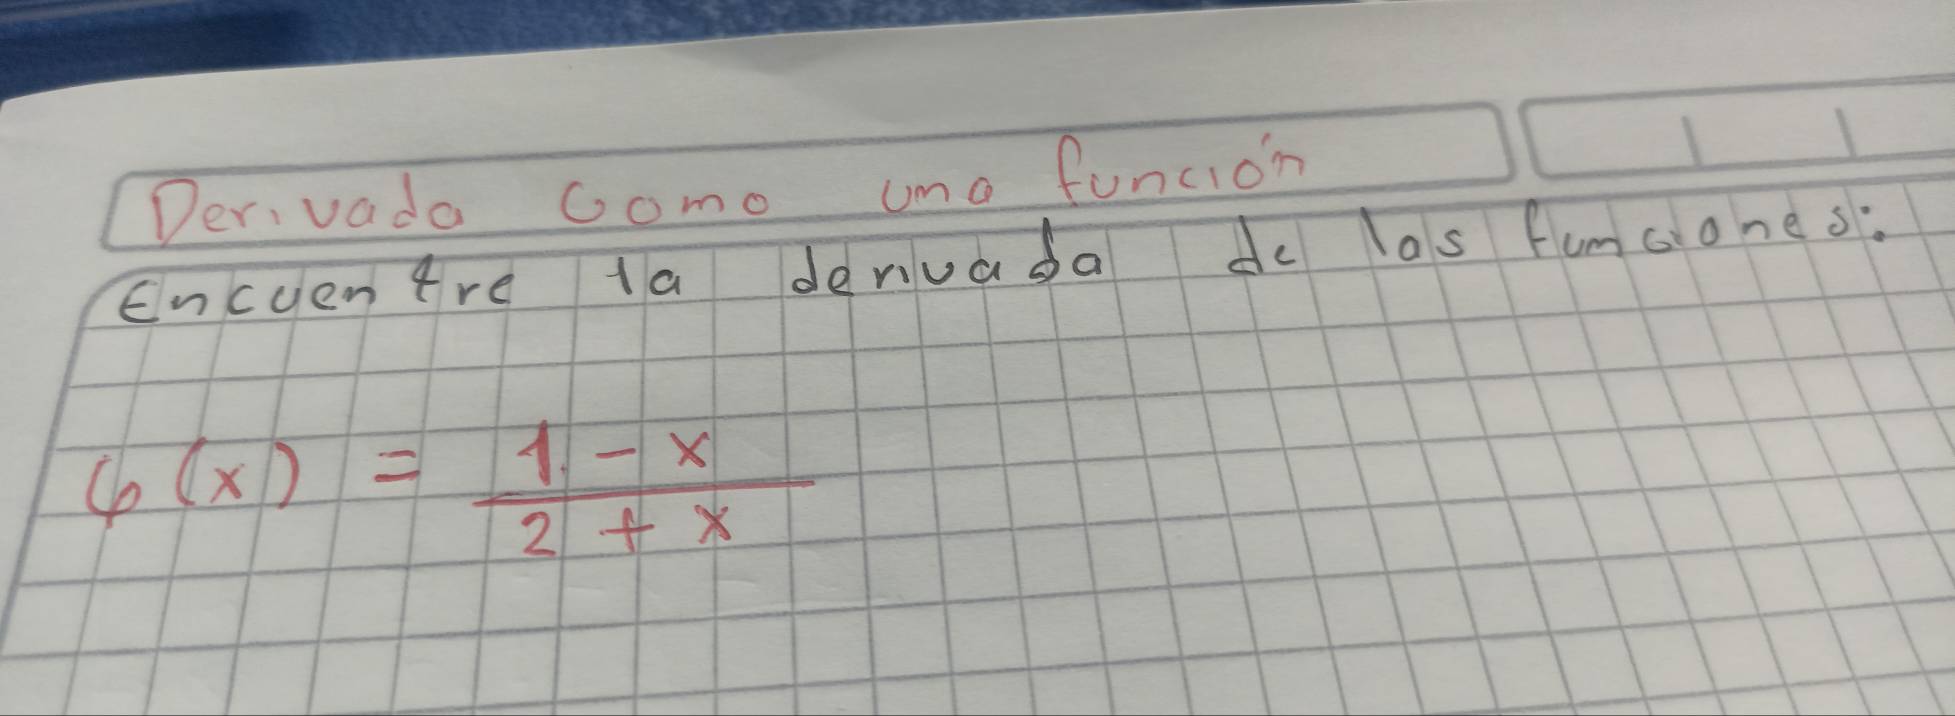 Derivada como una función
Encuentre la derivada de las funciones:
φ(x) = 1 - x
2 + x